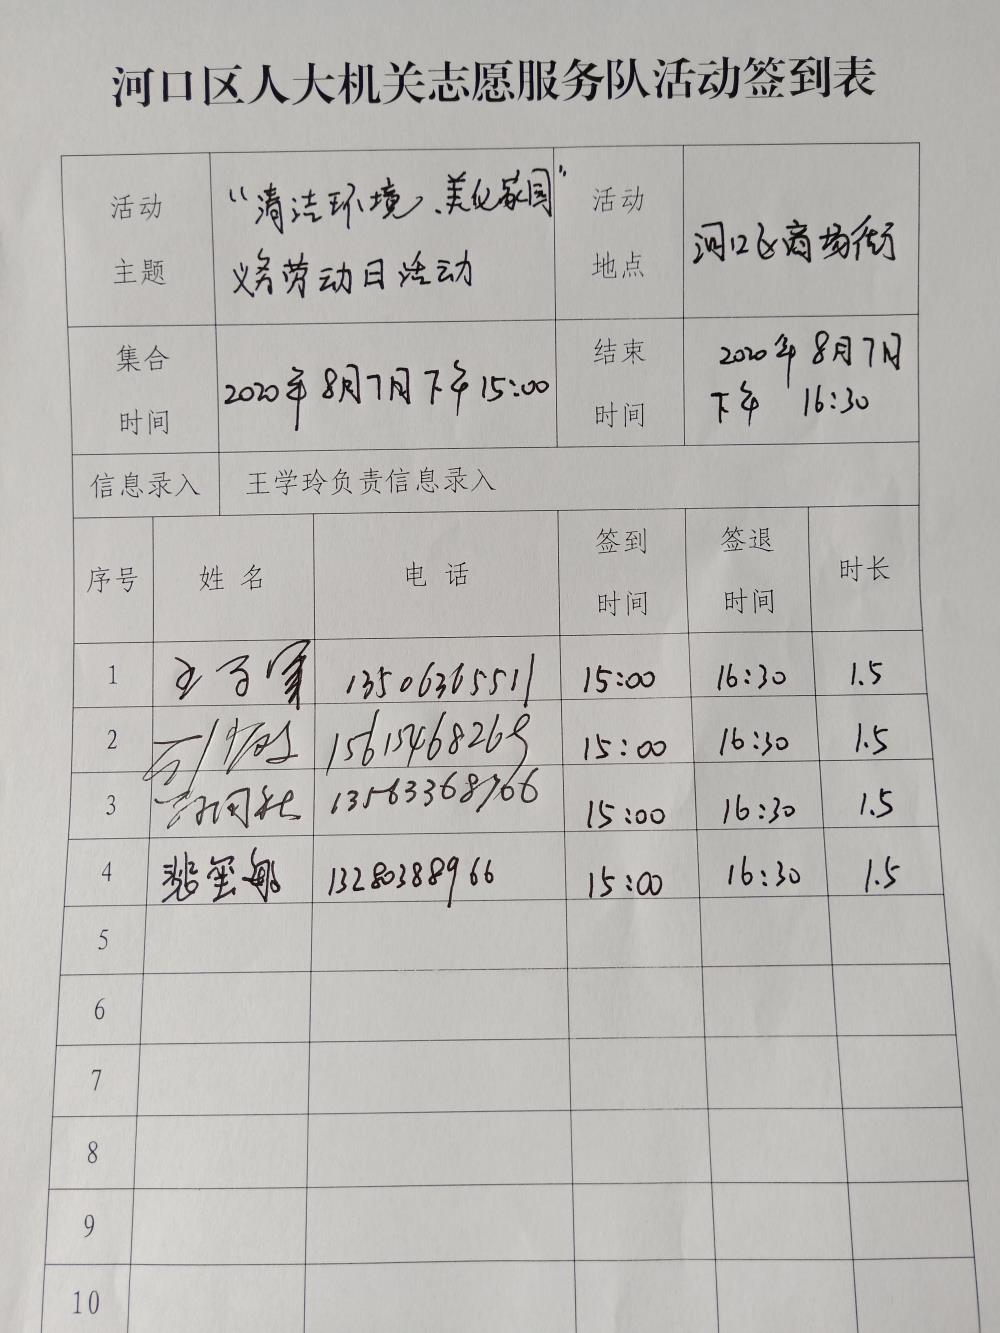 河口区人大机关志愿服务队活动签到表
活动主题 “清洁环境、美化家园”义务劳动日活动 活动地点 河口区商场街
集合时间 2020年8月7日下午15:00 结束时间 2020年8月7日下午 16:30
信息录入 王学玲负责信息录入
序号 姓名 电话 签到时间 签退时间 时长
1 13506365511 15:00 16:30 1.5
2 15615468269 15:00 16:30 1.5
3 15:00 16:30 1.5
4 13280388966 15:00 16:30 1.5
5
6
7
8
9
10